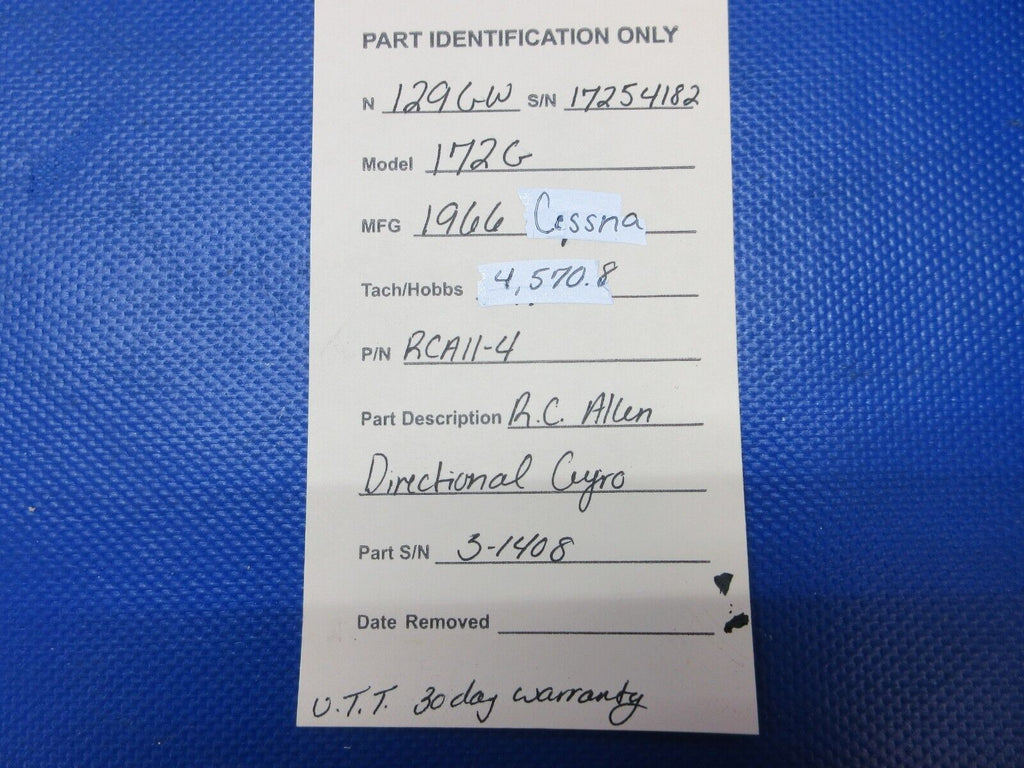 PART IDENTIFICATION ONLY
N 129GW S/N 17254182
Model 172G
MFG 1966 Cessna
Tach/Hobbs 4,570.8
P/N RCA11-4
Part Description R.C. Allen
Directional Gyro
Part S/N 3-1408
Date Removed
U.T.T. 30 day warranty